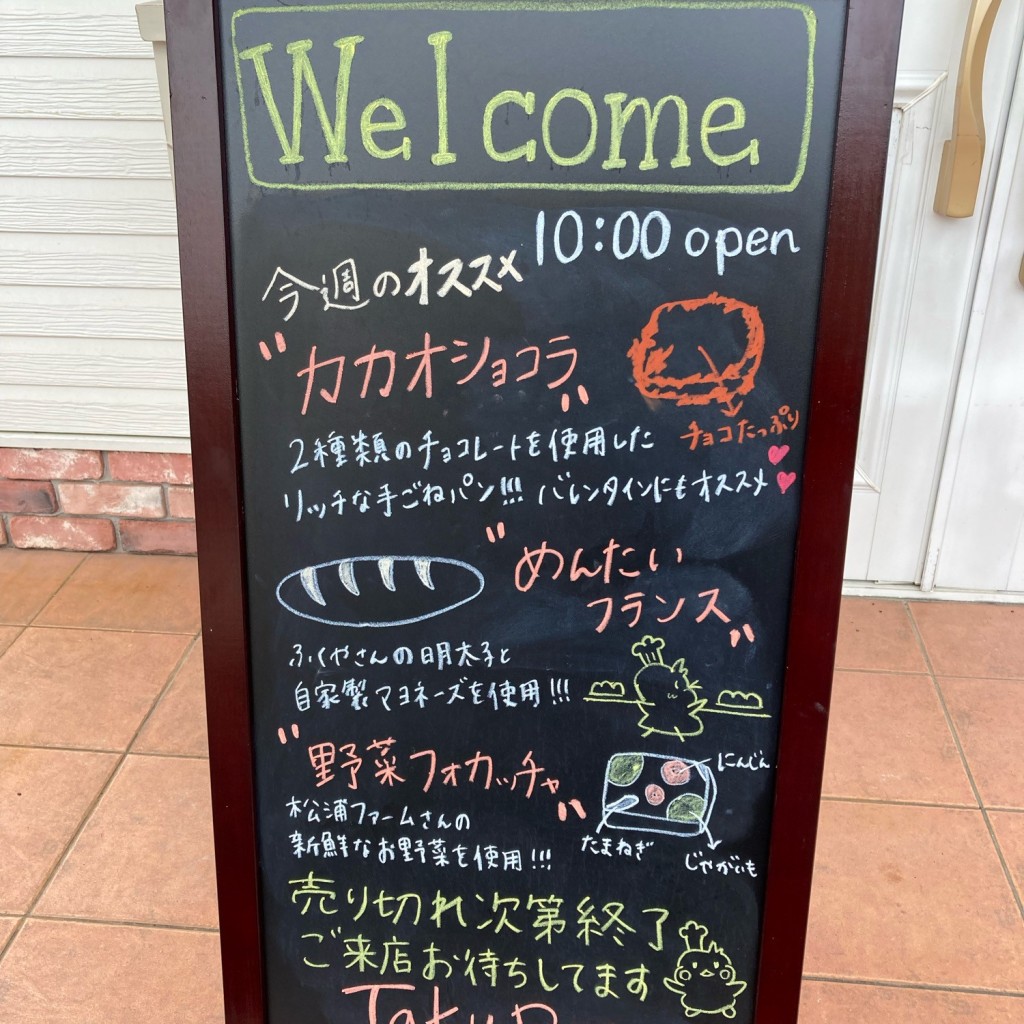 Welcome
10:00 open
今週のオススメ
"カカオショコラ"
チョコたっぷり
2種類のチョコレートを使用した
リッチな手ごねパン!!! バレンタインにもオススメ
"めんたい
フランス"
ふくやさんの明太子と
自家製マヨネーズを使用!!!
"野菜フォカッチャ"
にんじん
松浦ファームさんの
新鮮なお野菜を使用!!!
たまねぎ
じゃがいも
売り切れ次第終了
ご来店お待ちしてます